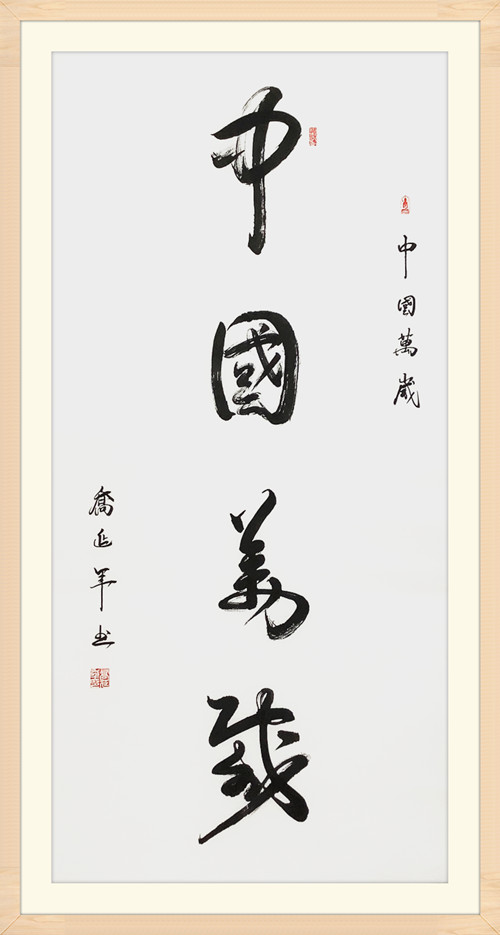 中國萬歲
中國萬歲
喬延书